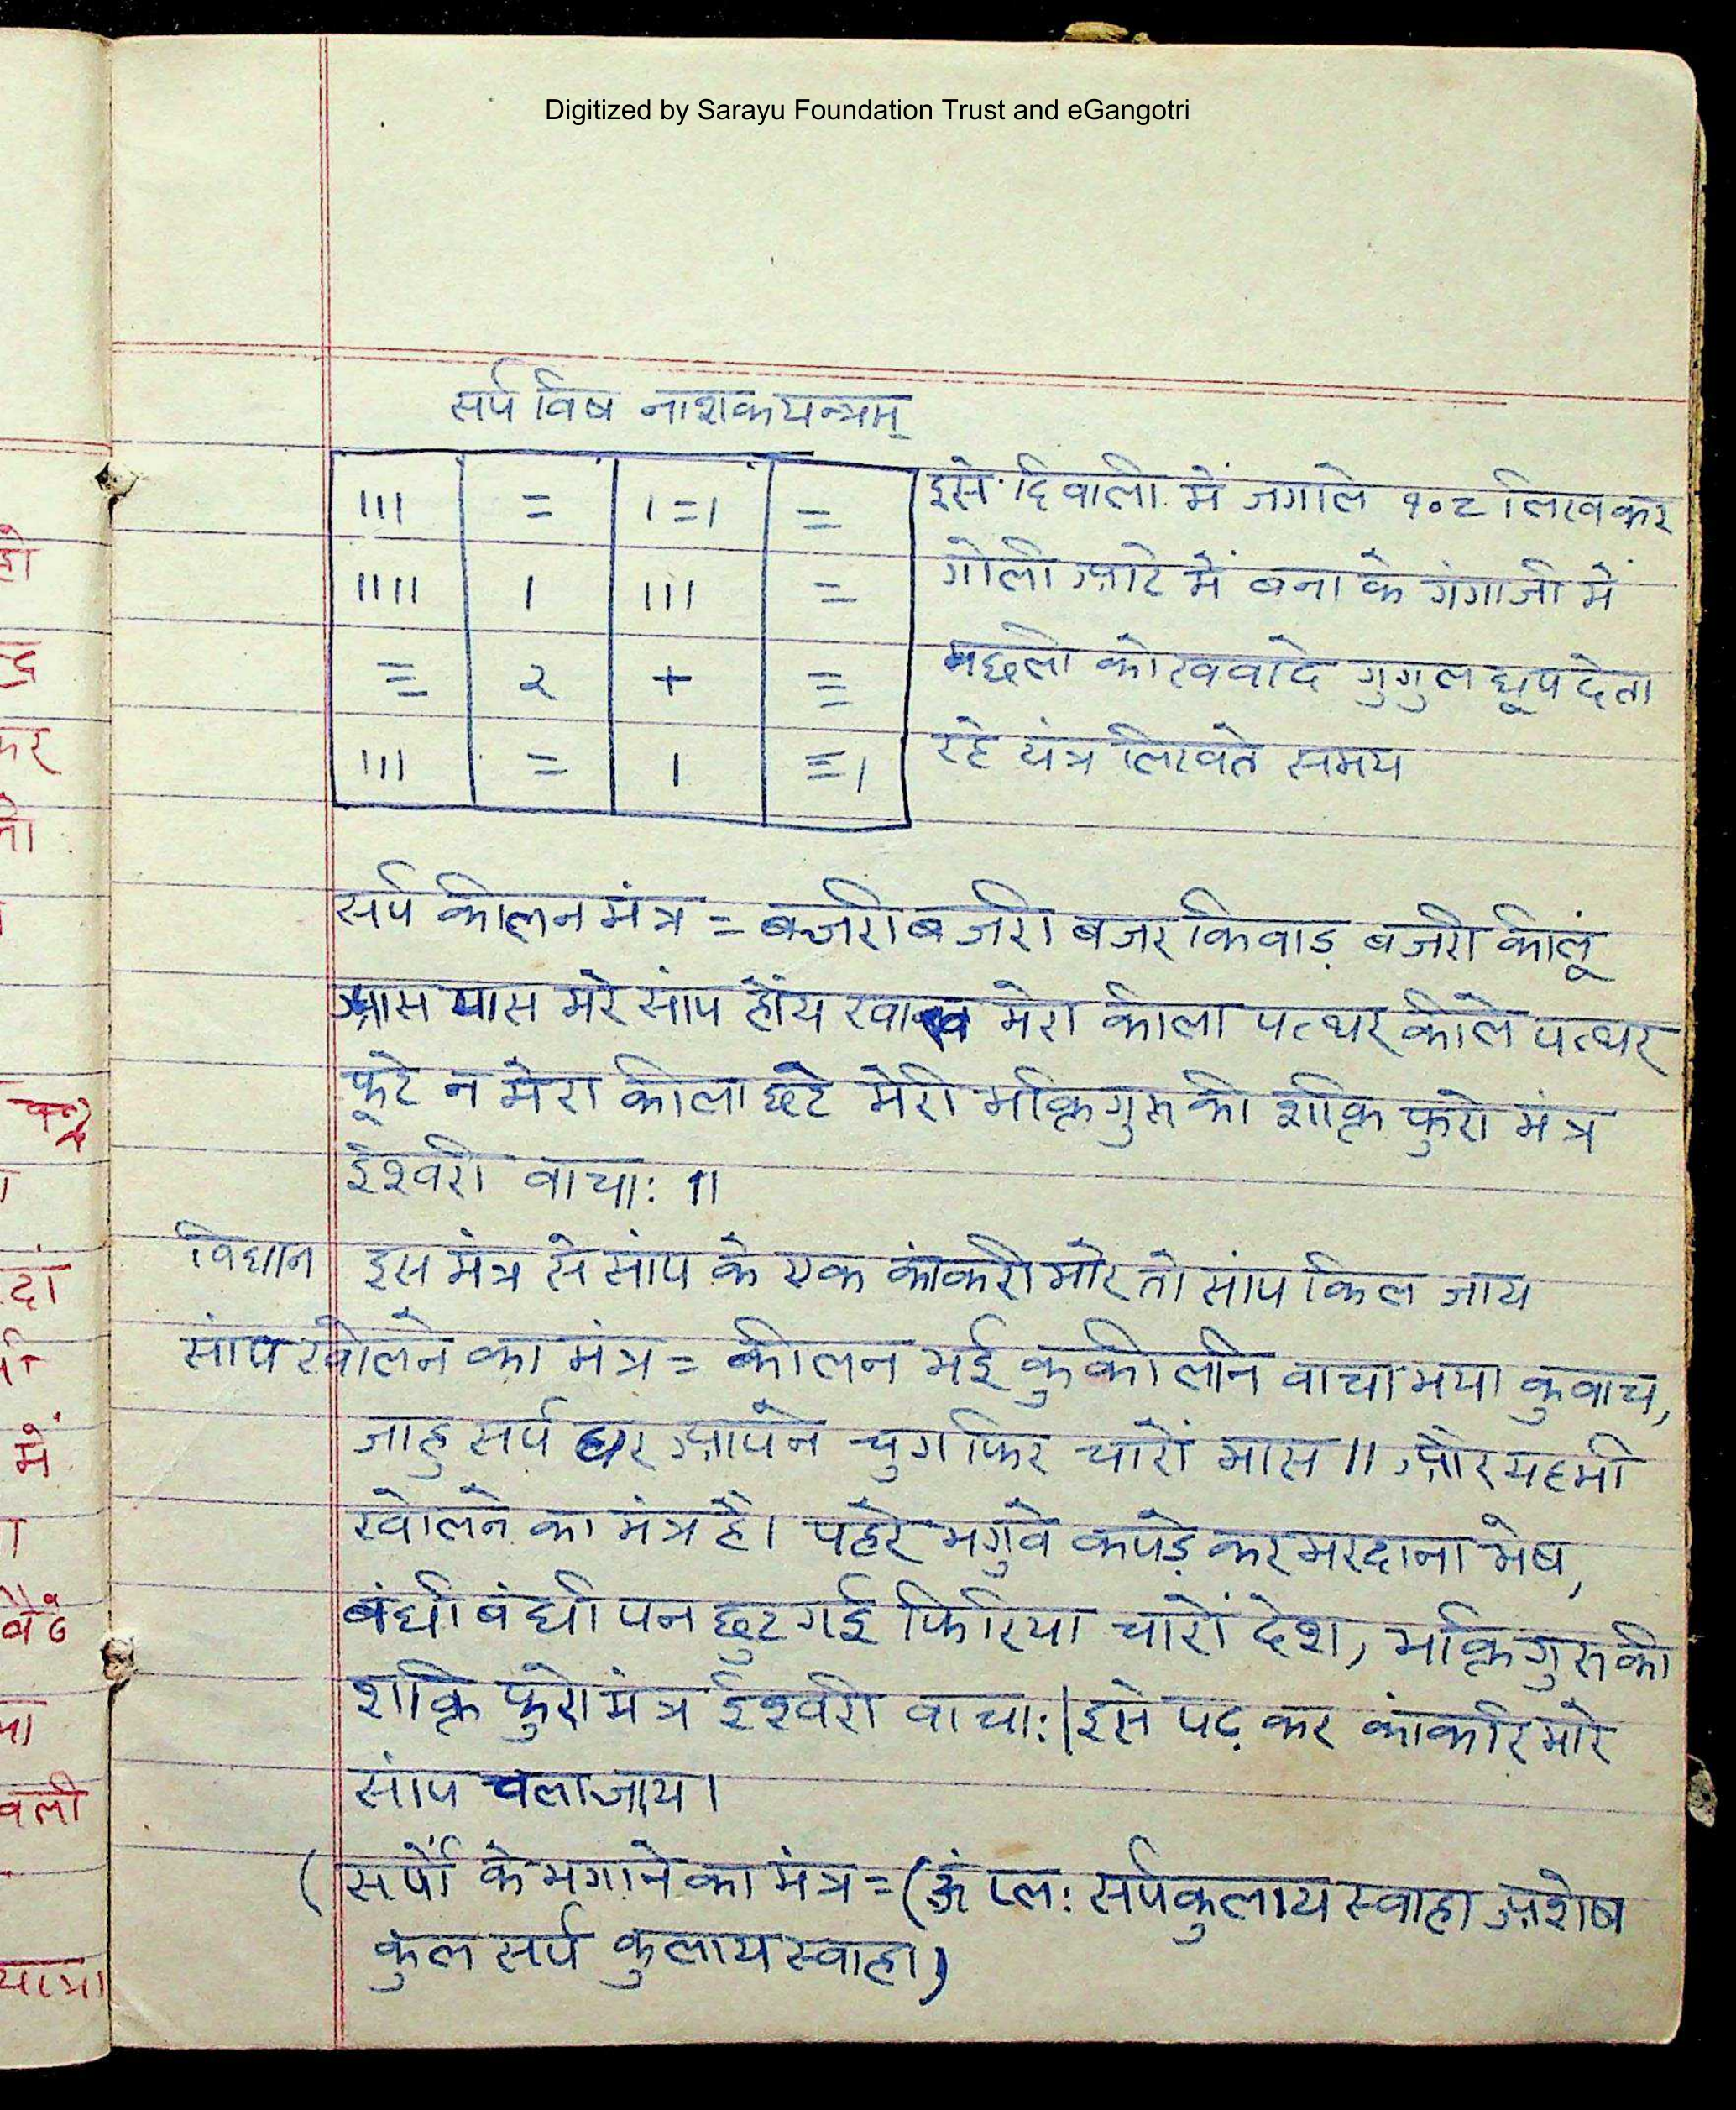 Digitized by Sarayu Foundation Trust and eGangotri
सर्प विष नाशक यन्त्रम्
ııı = ı=ı =
ıııı ı ııı =
= २ + =
ııı = ı =ı
इसे दिवाली में जगाले १०८ लिखकर
गोली आटे में बना के गंगाजी में
मछली को खवादे गुगुल धूप देता
रहे यंत्र लिखते समय
सर्प कीलन मंत्र = बजरी बजरी बजर किवाड़ बजरी कीलूं
आस पास मरे सांप होंय खाख मेरा कीला पत्थर कीले पत्थर
फूटे न मेरा कीला छूटे मेरी भक्ति गुरु की शक्ति फुरो मंत्र
ईश्वरी वाचा: ॥
विधान इस मंत्र से सांप के एक कांकरी मारे तो सांप किल जाय
सांप खोलने का मंत्र = कीलन भई कुकीलनि वाचा भया कुवाच,
जाहु सर्प घर आपने चुग फिर चारों मास ॥ और यह भी
खोलने का मंत्र है। पहरे भगुवे कपड़े कर मरदाना भेष,
बंधी बंधी पन छुट गई फिरिया चारों देश, भक्ति गुरु की
शक्ति फुरो मंत्र ईश्वरी वाचा: | इसे पढ़ कर कांकरि मारे
सांप चला जाय।
( सर्पों के भगाने का मंत्र = (ॐ प्ल: सर्पकुलाय स्वाहा अशेष
कुल सर्प कुलाय स्वाहा)